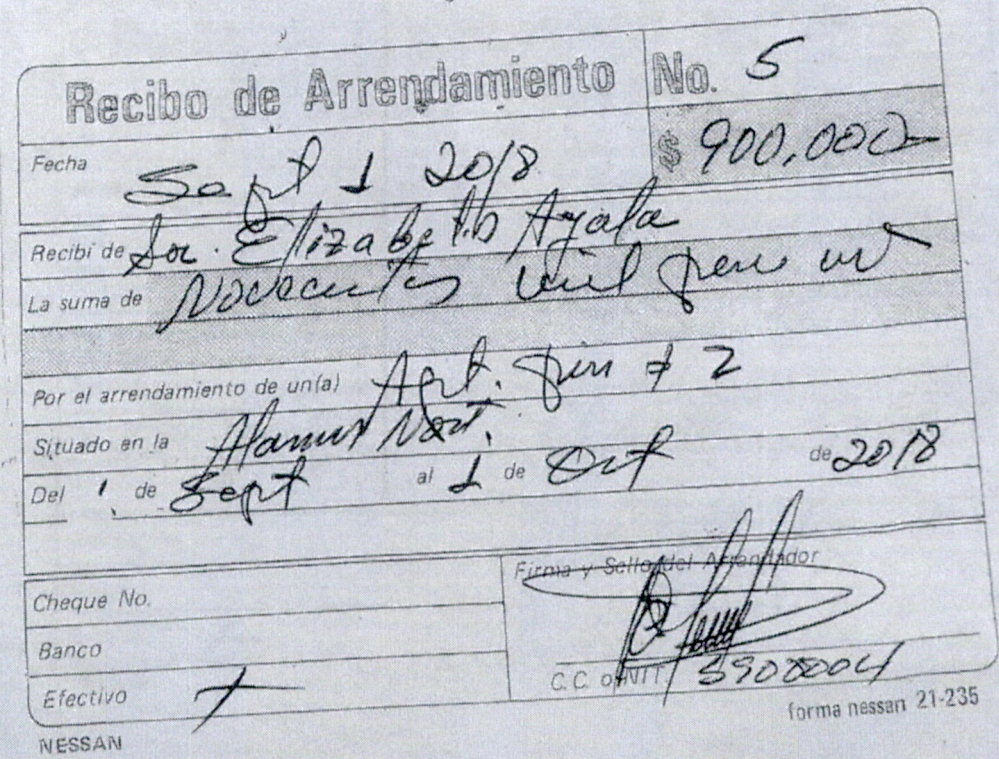 Recibo de Arrendamiento No. 5
$ 900,000
Fecha Sept 1 2018
Recibí de Sra. Elizabeth Ayala
La suma de Novecientos mil pesos
Por el arrendamiento de un(a) Apt. # 2
Situado en la Alamos Nort.
Del 1 de Sept al 1 de Oct de 2018
Firma y Sello del Arrendador
Cheque No.
Banco
C.C. o NIT.
Efectivo
forma nessan 21-235
NESSAN